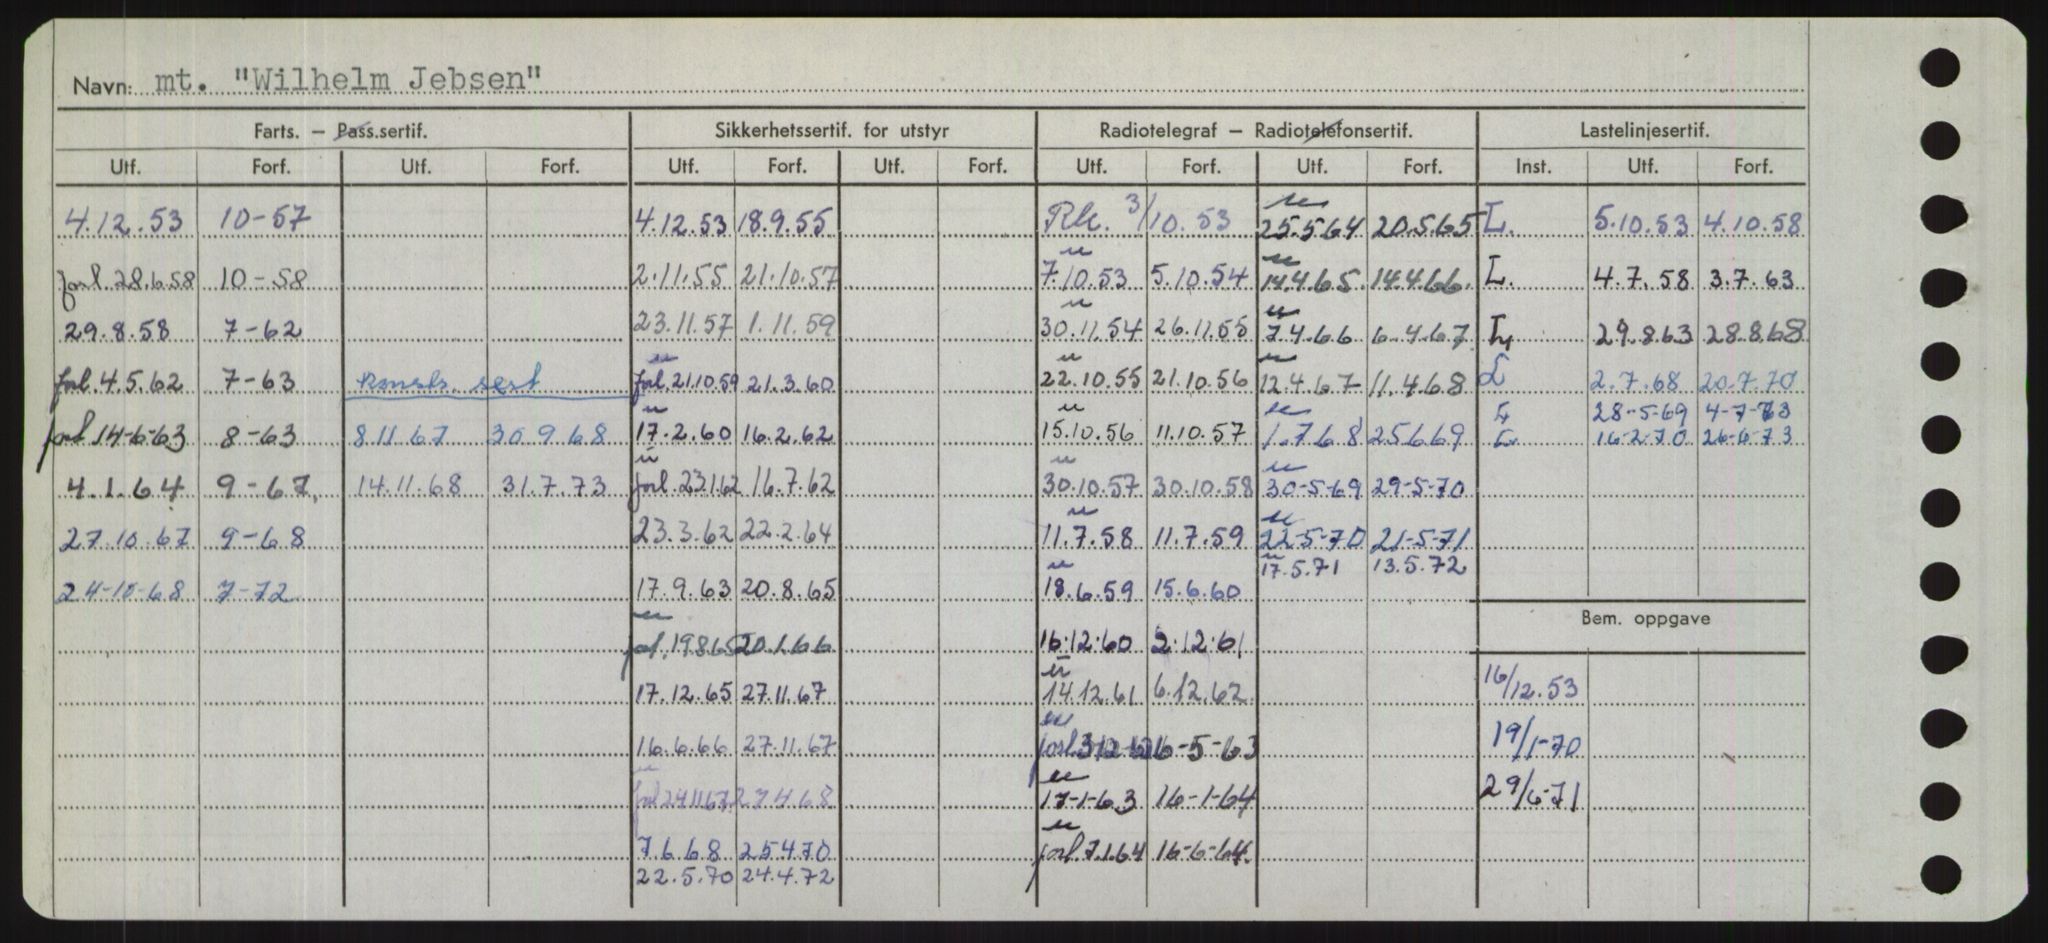 Navn: mt. "Wilhelm Jebsen"
Farts. – Pass.sertif. Sikkerhetssertif. for utstyr Radiotelegraf – Radiotelefonsertif. Lastelinjesertif.
Utf. Forf. Utf. Forf. Utf. Forf. Utf. Forf. Utf. Forf. Utf. Forf. Inst. Utf. Forf.
4.12.53 10-57 4.12.53 18.9.55 3/10.53 25.5.64 20.5.65 L. 5.10.53 4.10.58
forl. 28.6.58 10-58 2.11.55 21.10.57 7.10.53 5.10.54 14.4.65 14.4.66. L. 4.7.58 3.7.63
29.8.58 7-62 23.11.57 1.11.59 30.11.54 26.11.55 7.4.66 6.4.67 L 29.8.63 28.8.68
forl. 4.5.62 7-63 konstr. sert forl. 21.10.59 21.3.60 22.10.55 21.10.56 12.4.67 11.4.68 L 2.7.68 20.7.70
L 28-5-69 4-7-73
forl 14-6-63 8-63 8.11.67 30.9.68 17.2.60 16.2.62 15.10.56 11.10.57 1.7.68 25.6.69 L 16-2-70 26-6-73
4.1.64 9-67. 14.11.68 31.7.73 forl. 23.1.62 16.7.62 30.10.57 30.10.58 30-5-69 29-5-70
27.10.67 9-68 23.3.62 22.2.64 11.7.58 11.7.59 22-5-70 21-5-71
17.5.71 13.5.72
24-10-68 7-72 17.9.63 20.8.65 18.6.59 15.6.60
Bem. oppgave
forl. 19.8.65 20.1.66 16.12.60 2.12.61
17.12.65 27.11.67 14.12.61 6.12.62. 16/12.53
16.6.66 27.11.67 forl. 16-5-63 19/1-70
forl 24.11.67 27.4.68 17-1-63 16-1-64 29/6-71
7.6.68 25.4.70 forl. 7.1.64 16-6-64.
22.5.70 24.4.72